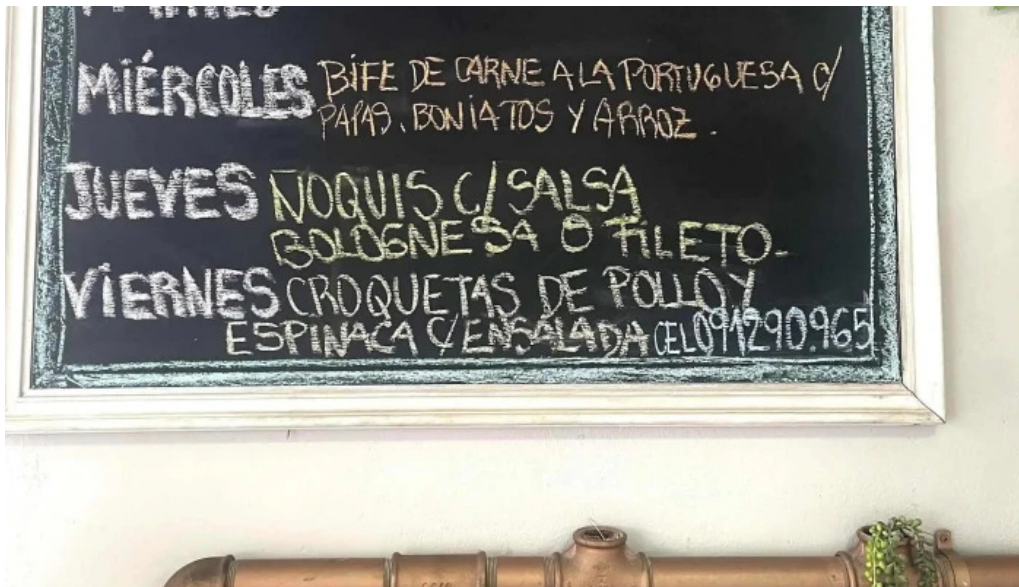 MARTES
MIÉRCOLES BIFE DE CARNE A LA PORTUGUESA C/
PAPAS, BONIATOS Y ARROZ.
JUEVES ÑOQUIS C/ SALSA
BOLOGNESA O FILETO-
VIERNES CROQUETAS DE POLLO Y
ESPINACA C/ENSALADA CEL 091290.965